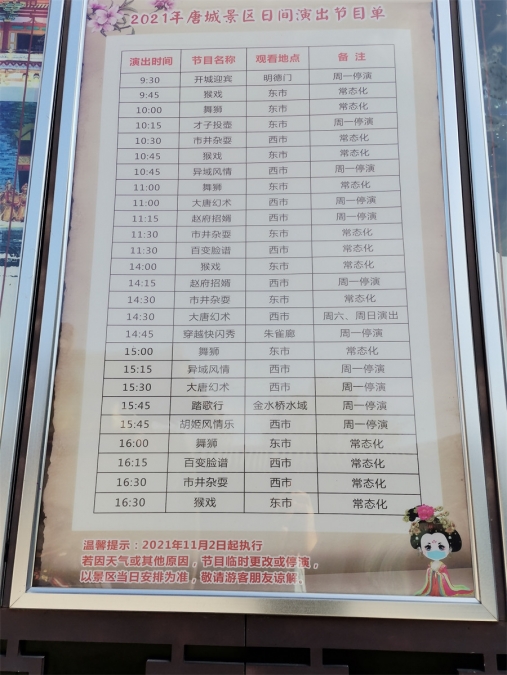 2021年唐城景区日间演出节目单
演出时间 节目名称 观看地点 备 注
9:30 开城迎宾 明德门 周一停演
9:45 猴戏 东市 常态化
10:00 舞狮 东市 常态化
10:15 才子投壶 东市 周一停演
10:30 市井杂耍 西市 常态化
10:45 猴戏 东市 常态化
10:45 异域风情 西市 周一停演
11:00 舞狮 东市 常态化
11:00 大唐幻术 西市 周一停演
11:15 赵府招婿 西市 周一停演
11:30 市井杂耍 东市 常态化
11:30 百变脸谱 西市 常态化
14:00 猴戏 东市 常态化
14:15 赵府招婿 西市 周一停演
14:30 市井杂耍 东市 常态化
14:30 大唐幻术 西市 周六、周日演出
14:45 穿越快闪秀 朱雀廊 周一停演
15:00 舞狮 东市 常态化
15:15 异域风情 西市 周一停演
15:30 大唐幻术 西市 周一停演
15:45 踏歌行 金水桥水域 周一停演
15:45 胡姬风情乐 西市 周一停演
16:00 舞狮 东市 常态化
16:15 百变脸谱 西市 常态化
16:30 市井杂耍 西市 常态化
16:30 猴戏 东市 常态化
温馨提示：2021年11月2日起执行
若因天气或其他原因，节目临时更改或停演，
以景区当日安排为准，敬请游客朋友谅解。